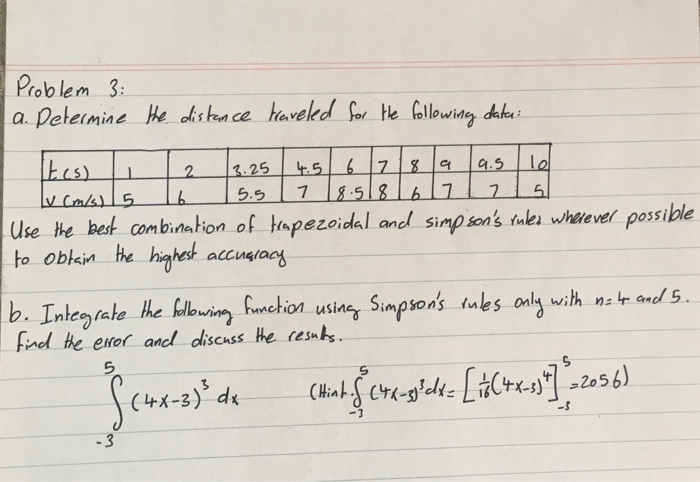 Problem 3:
a. Determine the distance traveled for the following data:
t(s) 1 2 3.25 4.5 6 7 8 9 9.5 10
V (m/s) 5 6 5.5 7 8.5 8 6 7 7 5
Use the best combination of trapezoidal and simpson's rules wherever possible
to obtain the highest accuracy
b. Integrate the following function using Simpson's rules only with n=4 and 5.
Find the error and discuss the results.
∫₋₃⁵ (4x-3)³ dx (Hint. ∫₋₃⁵ (4x-3)³dx = [1/16 (4x-3)⁴]₋₃⁵ = 2056)